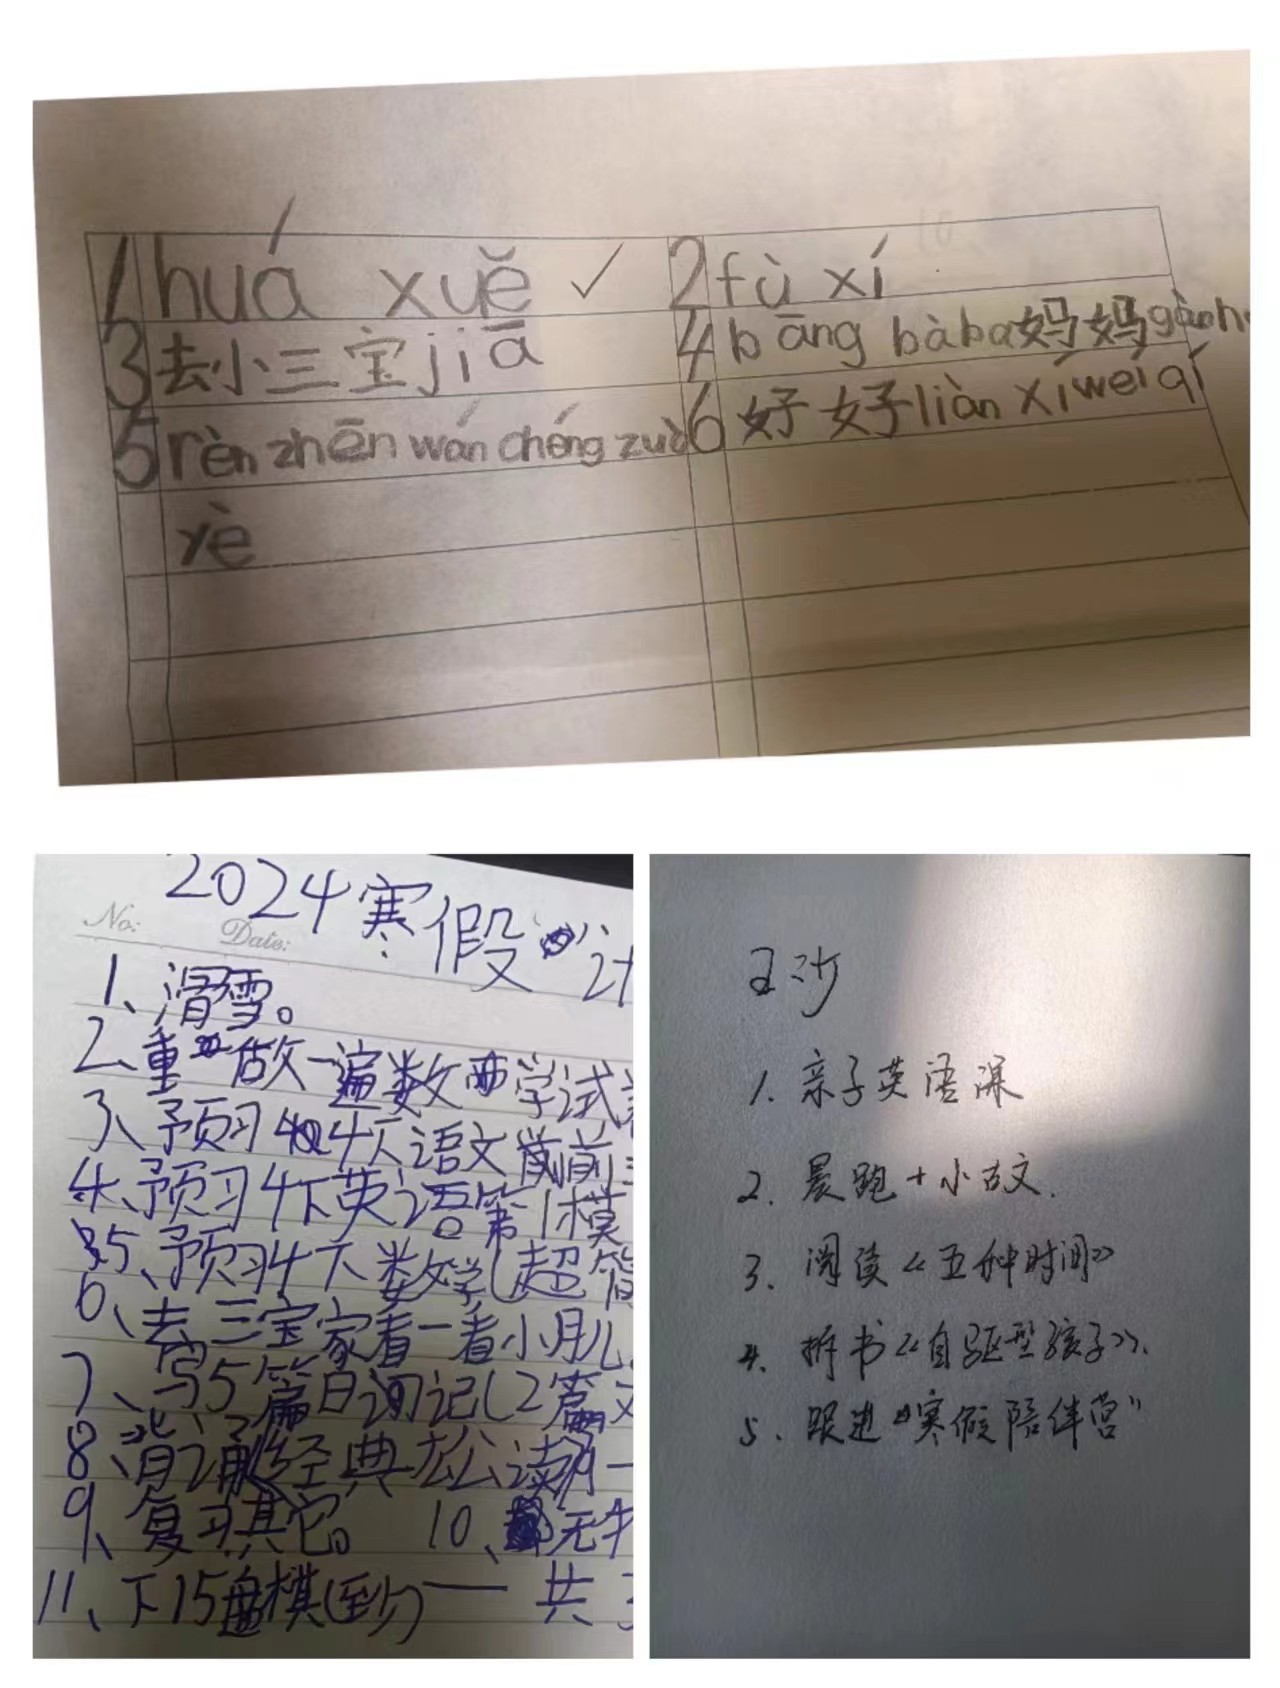 1 huá xuě ✓ 2 fù xí
3 去小三宝jiā 4 bāng bàba妈妈gàn h
5 rèn zhēn wán chéng zuò 6 好好liàn xí wéi qí
yè
2024寒假计
No: Date:
1、滑雪。
2、重做一遍数学试
3、预习4下语文前
4、预习4下英语第1模
5、预习4下数学(超简
6、去三宝家看一看小月儿
7、写5篇日记(2篇
8、背诵经典
9、复习其它。 10、无
11、下15盘棋(至少)—— 共
王沙
1. 亲子英语课
2. 晨跑+小古文.
3. 阅读《五种时间》
4. 拆书《自驱型孩子》.
5. 跟进“寒假陪伴营”